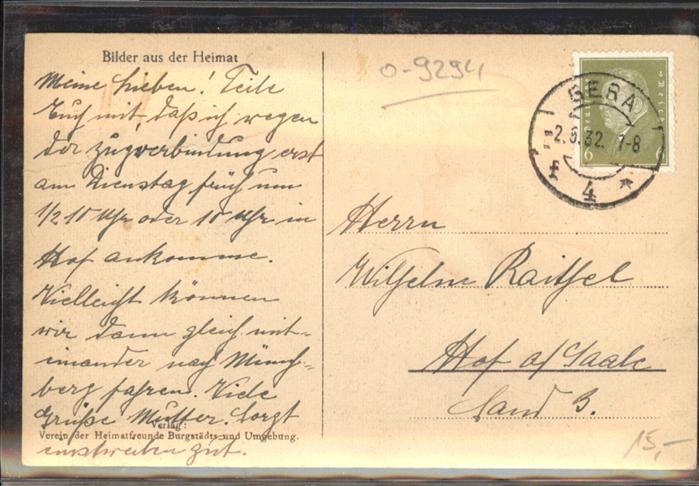 Bilder aus der Heimat
Meine Lieben! Teile
Euch mit, daß ich wegen
der Zugverbindung erst
am Dienstag früh um
1/2 10 Uhr oder 10 Uhr in
Hof ankomme.
Vielleicht können
wir dann gleich mit-
einander nach Münch-
berg fahren. Viele
Grüße Mutter. Sorgt
Verlag:
Verein der Heimatfreunde Burgstädts und Umgebung.
gut.
0-9294
GERA
2.6.32. 7-8
4
Herrn
Wilhelm Raithel
Hof a/Saale
15,-